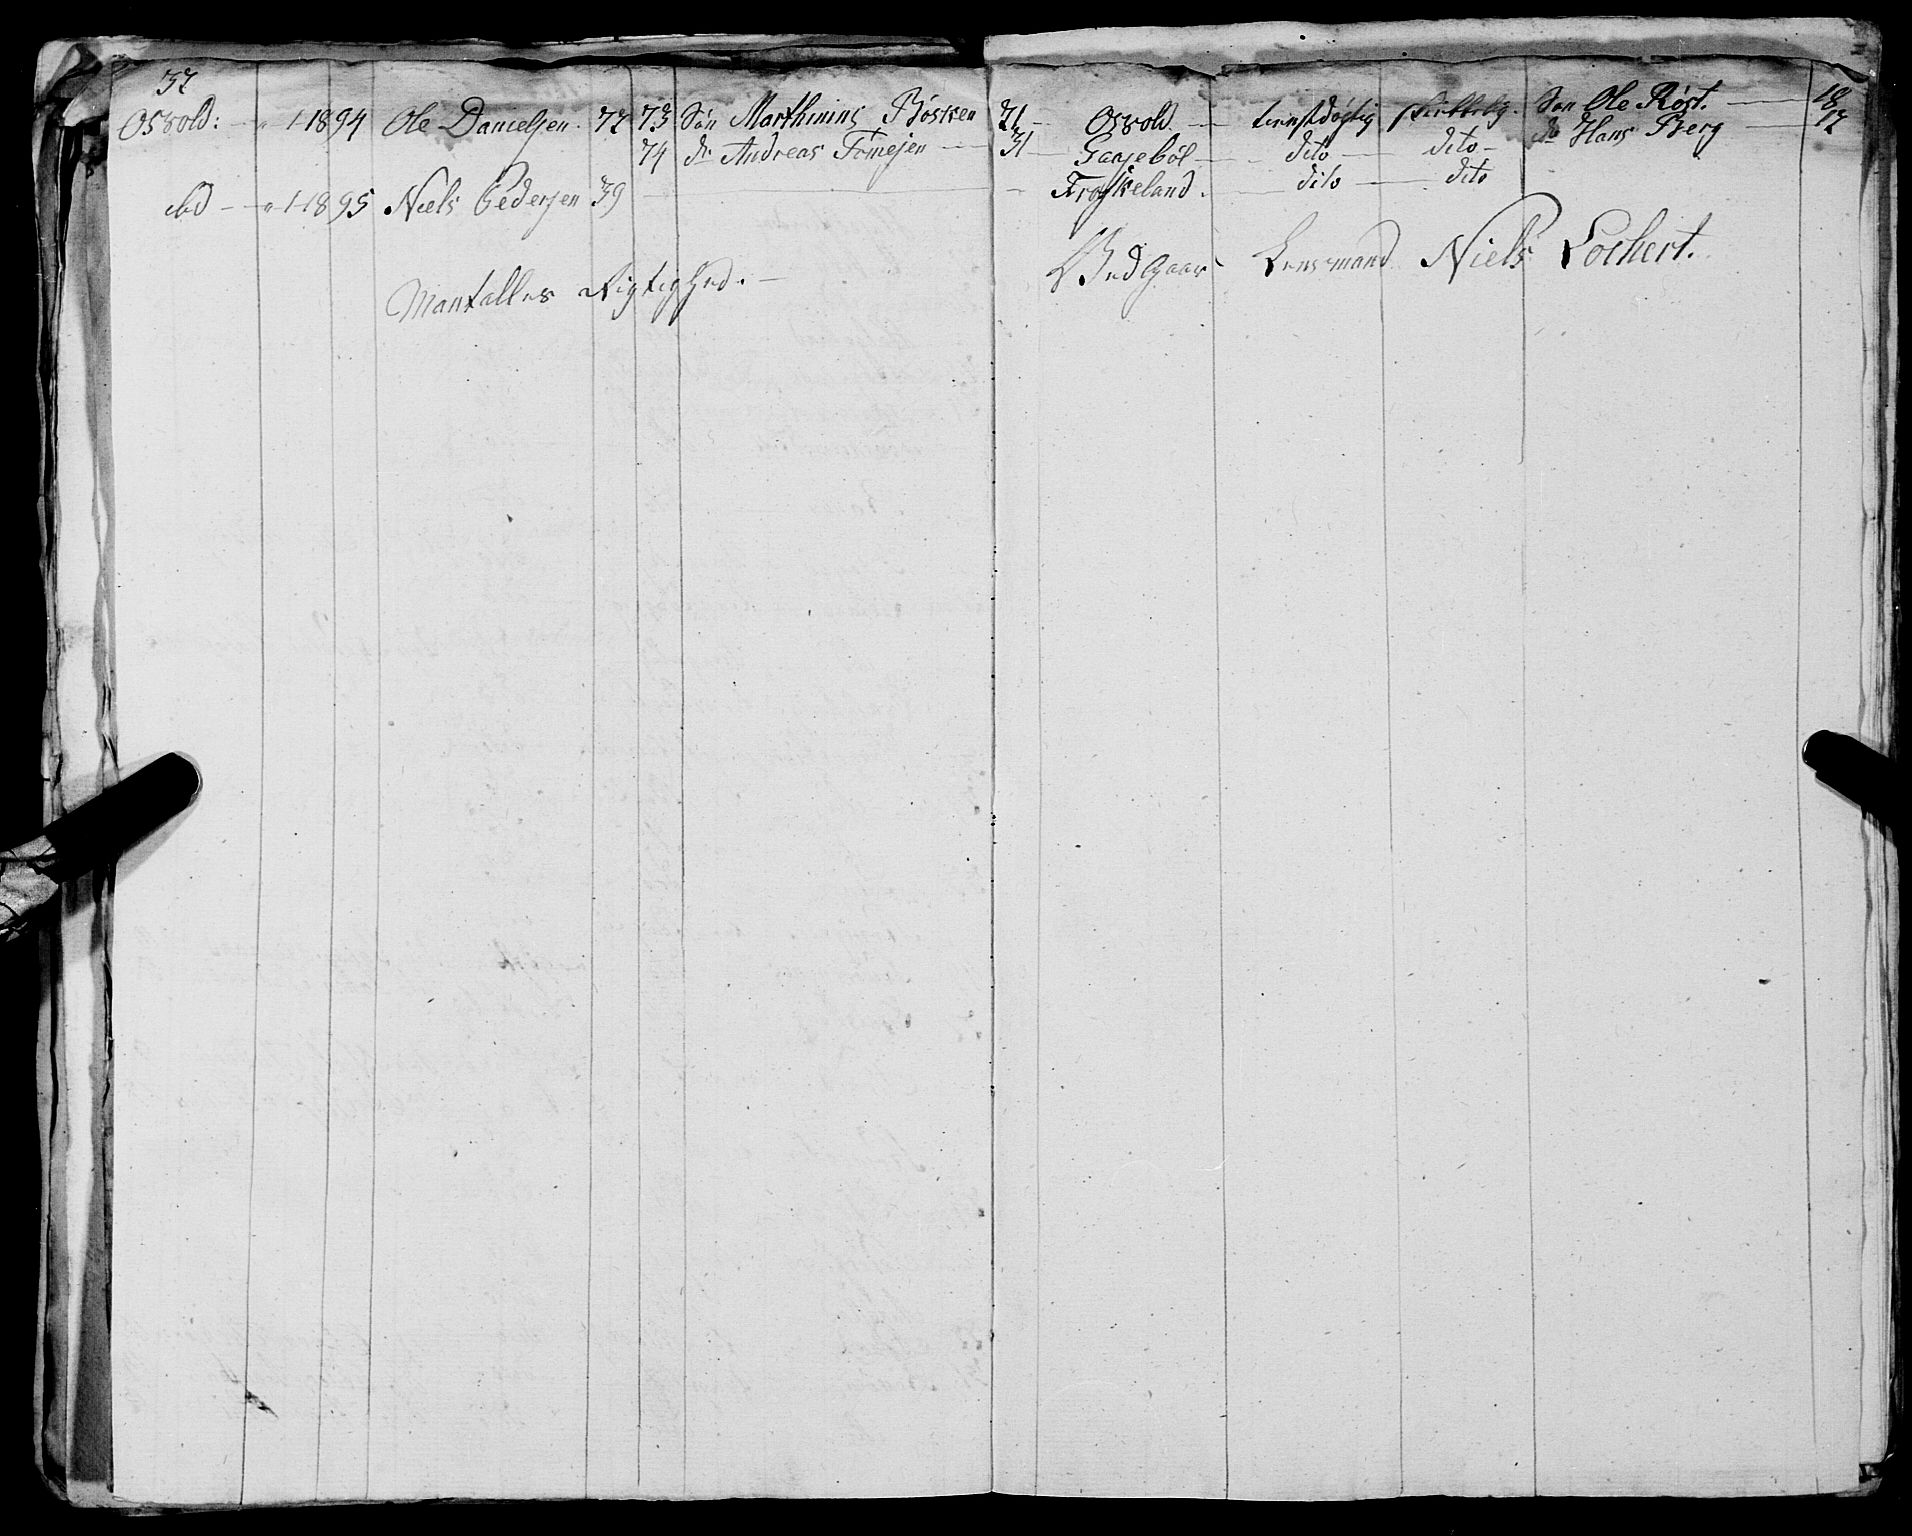 37
Osvold: — " 1 1894 Ole Danielsen 72 73 Søn Marthinius Røsken 21 — Osvold — tienstdøgtig Søn Ole Røst. — 18
74 do Andreas Tomesen — 31 — Gaasebøl — dito — dito — do Hans Berg — 17
ibd — " 1 1895 Niels Pedersen 39 — Frøskeland. — dito — dito
Mantallets Rigtighed. — Vedgaar Lensmand Niels Lochert.